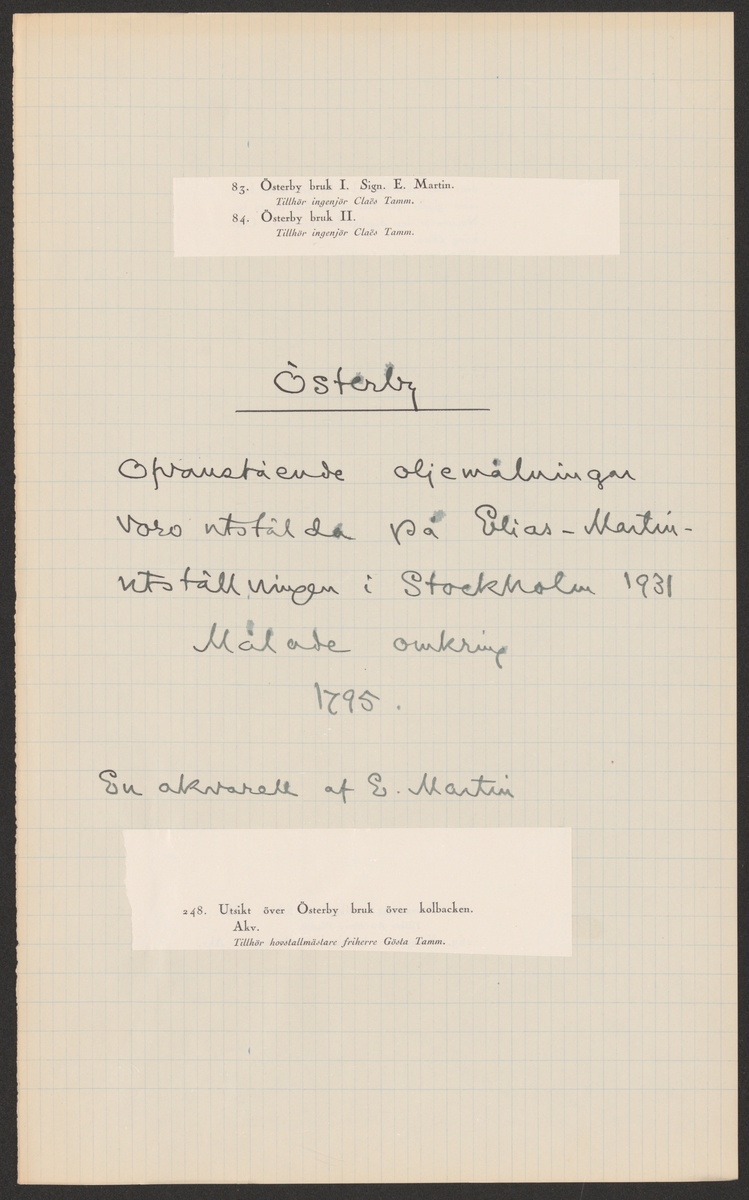 83. Österby bruk I. Sign. E. Martin.
Tillhör ingenjör Claës Tamm.
84. Österby bruk II.
Tillhör ingenjör Claës Tamm.
Österby
Ofvanstående oljemålningar
voro utstälda på Elias-Martin-
utställningen i Stockholm 1931
Målade omkring
1795.
En akvarell af E. Martin
248. Utsikt över Österby bruk över kolbacken.
Akv.
Tillhör hovstallmästare friherre Gösta Tamm.